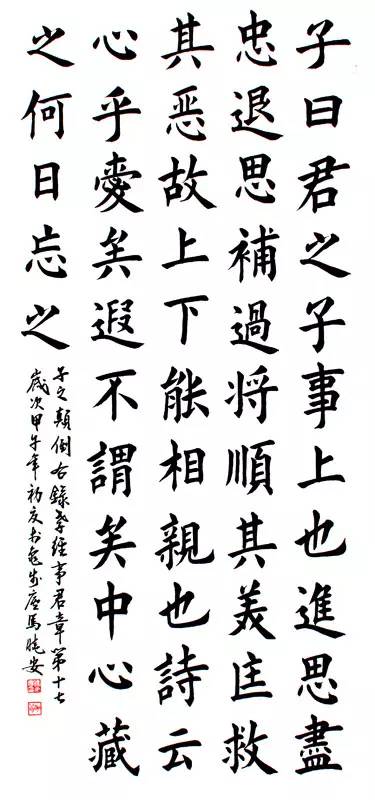 子曰君之子事上也進思盡
忠退思補過将順其美匡救
其恶故上下能相親也詩云
心乎愛矣遐不謂矣中心藏
之何日忘之
子之顛倒右録孝經事君章第十七
歲次甲午年初夏馬曉安